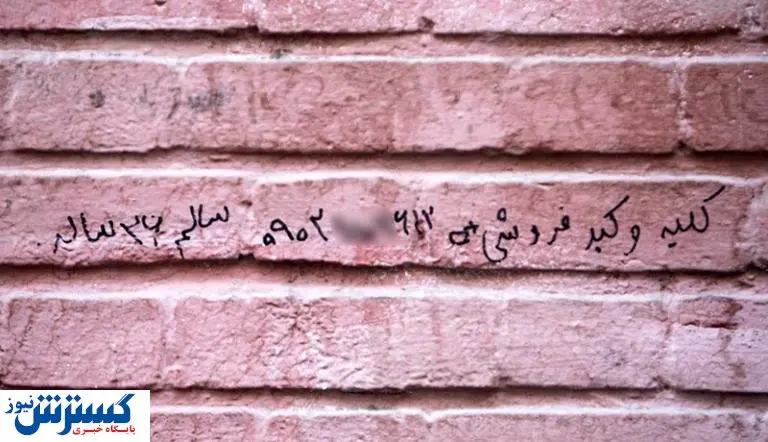 کلیه و کبد فروشی ۰۹۰۲ ۶۱۲ سالم ساله
گسترش نیوز
پایگاه خبری